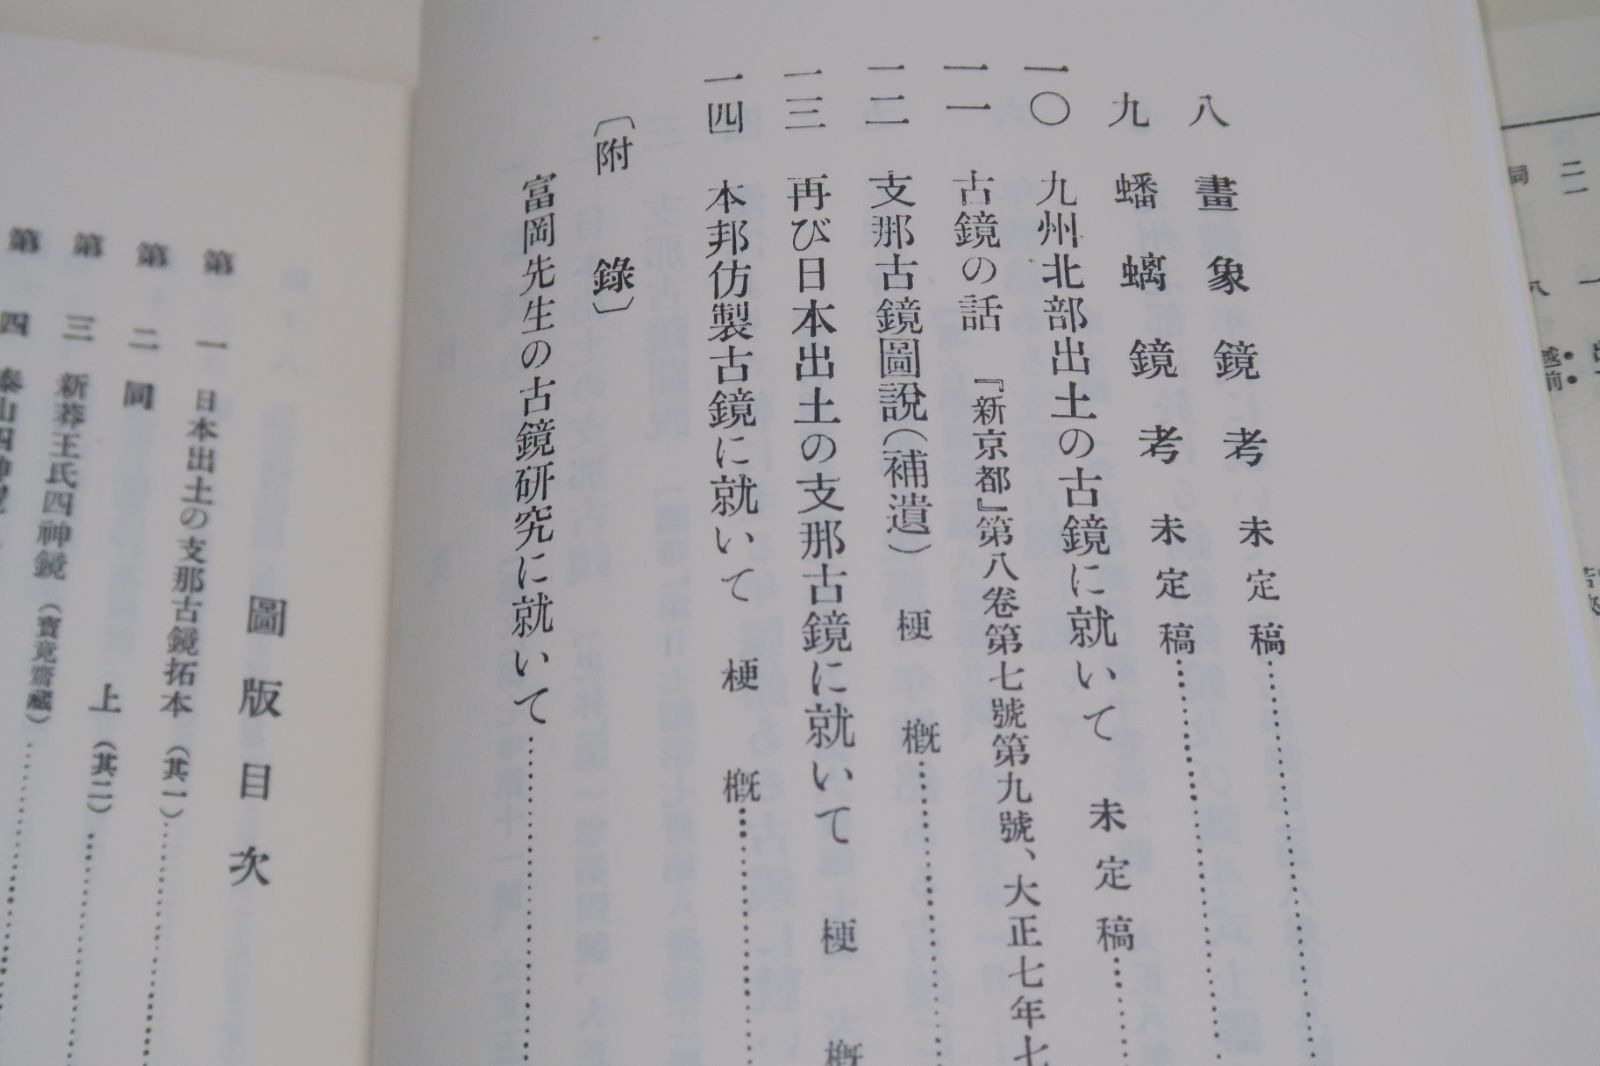 八 畫象鏡考 未定稿
九 蟠螭鏡考 未定稿
一〇 九州北部出土の古鏡に就いて 未定稿
一一 古鏡の話 『新京都』第八卷第七號第九號、大正七年七
一二 支那古鏡圖說(補遺) 梗概
一三 再び日本出土の支那古鏡に就いて 梗概
一四 本邦仿製古鏡に就いて 梗概
〔附錄〕
富岡先生の古鏡研究に就いて
圖版目次
第一 日本出土の支那古鏡拓本(其一)
第二 同 上(其二)
第三 新莽王氏四神鏡(寶竟齋藏)
第四 泰山四神
越前